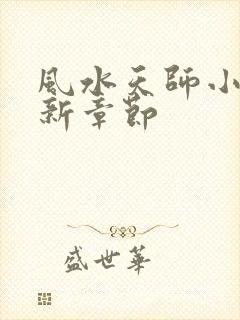 風水天師小
新章節
盛世華